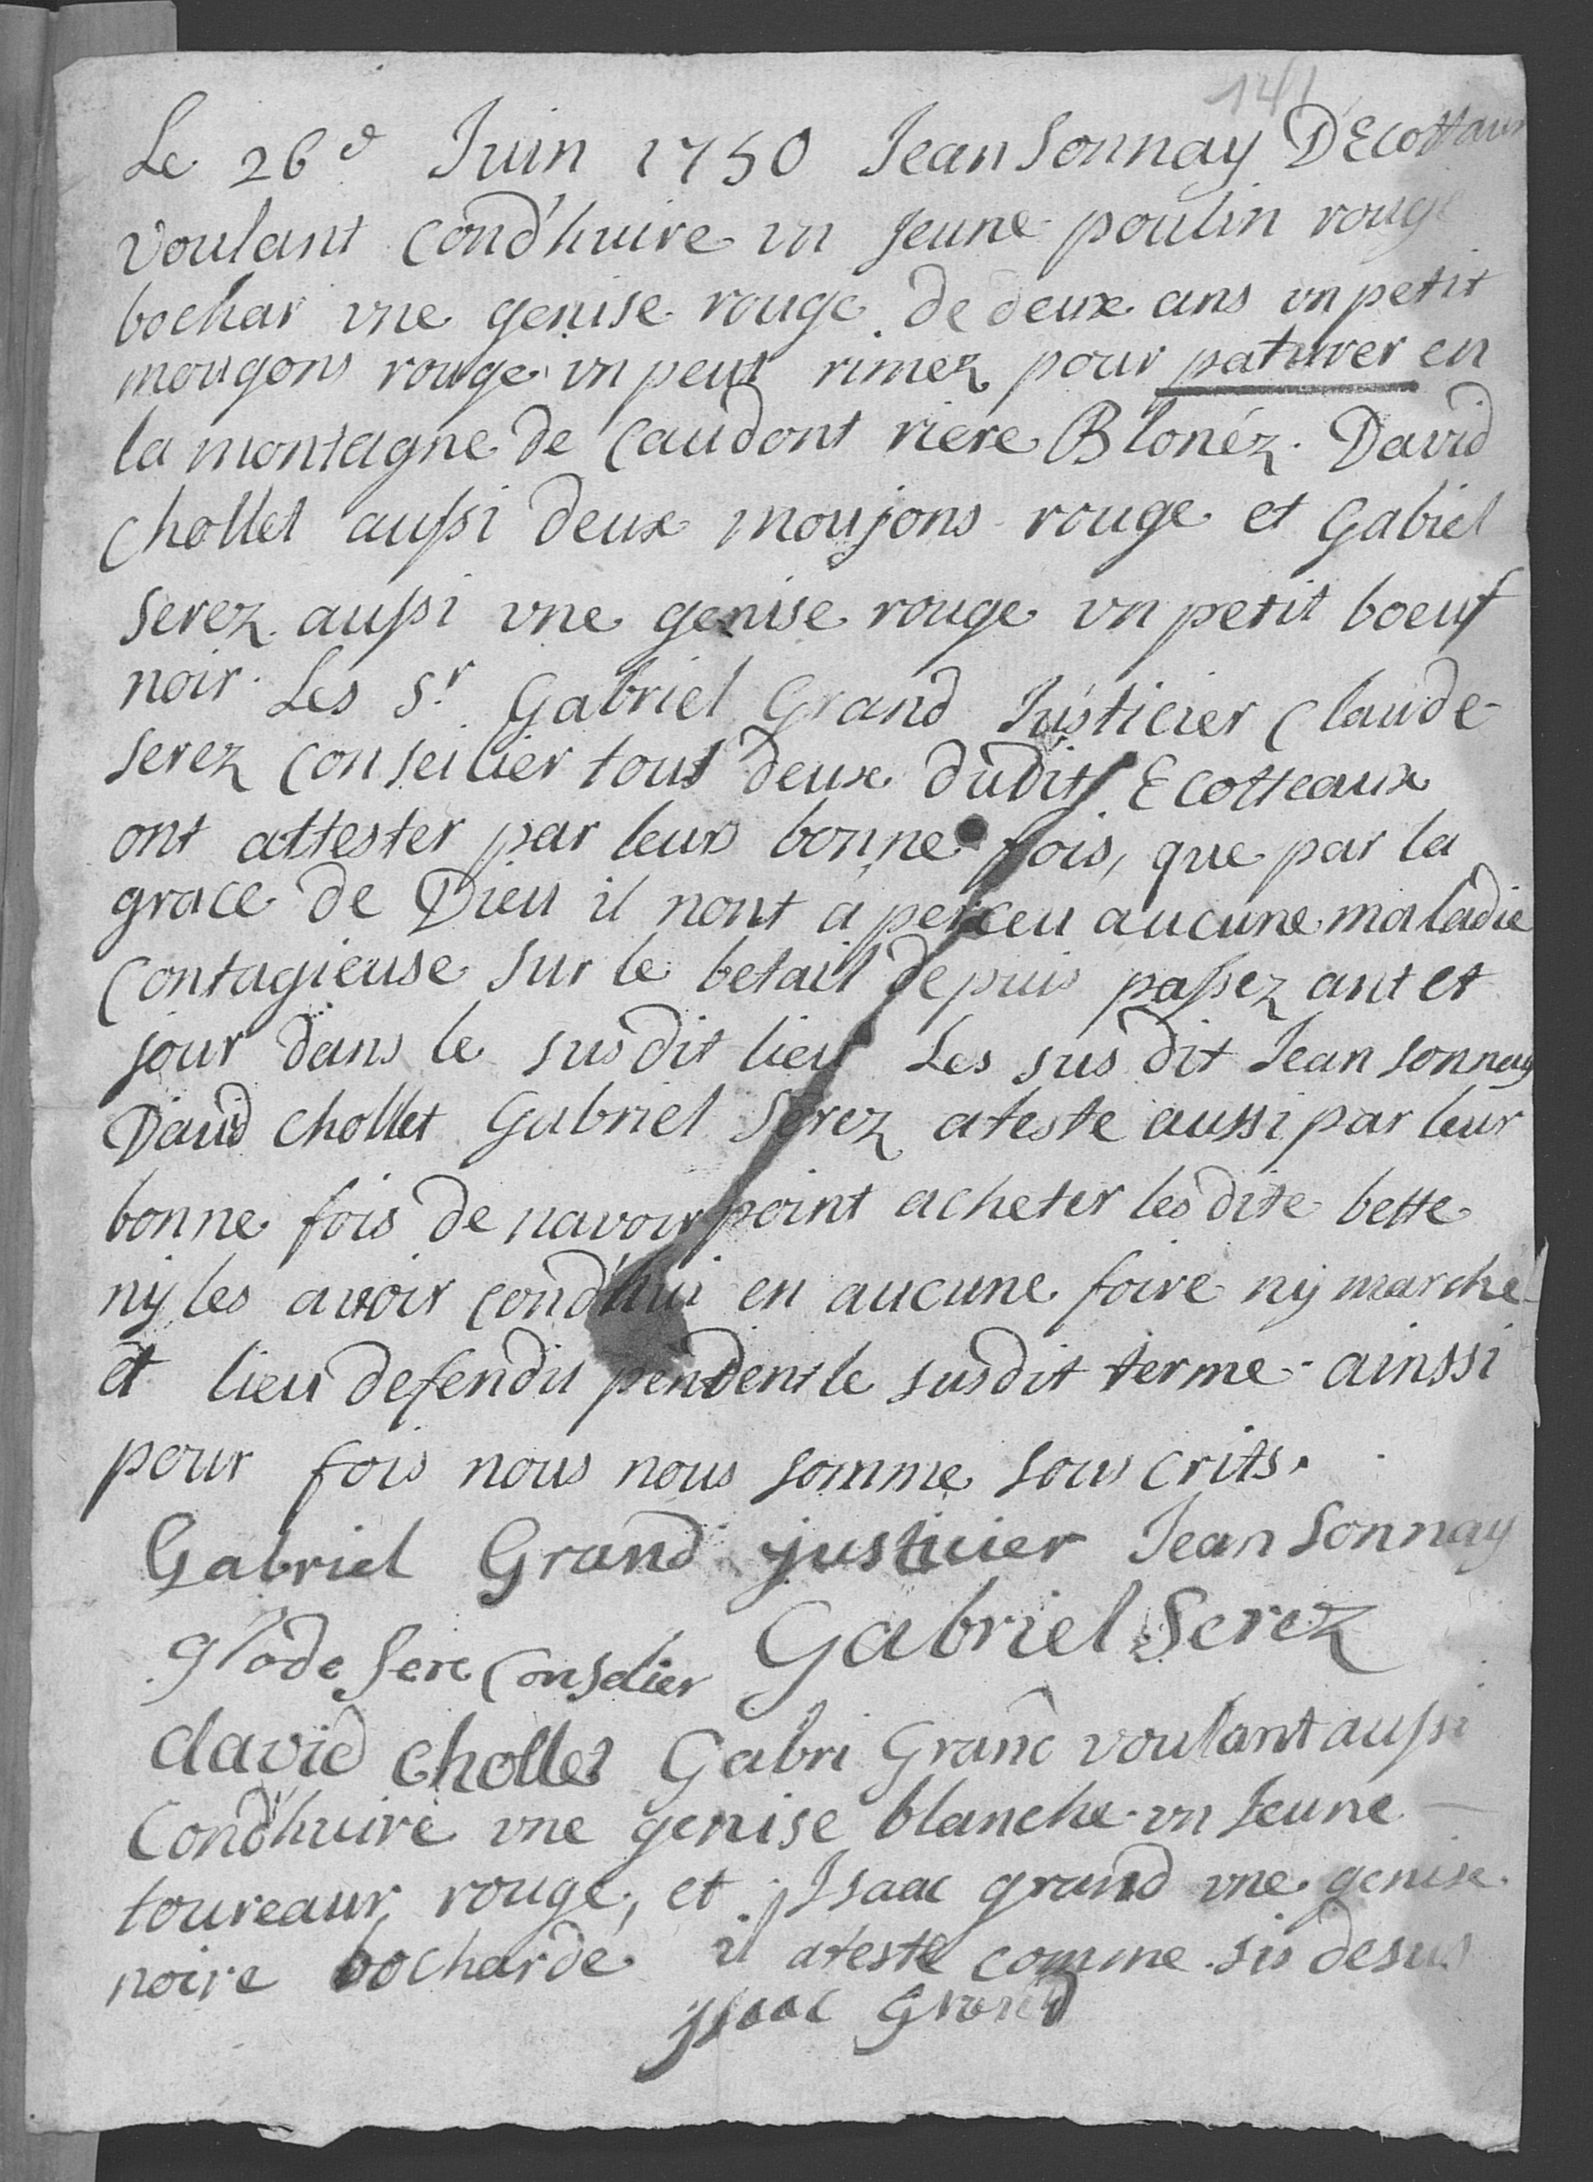 141
Le 26e Juin 1750 Jean Sonnay D'Ecottaux
voulant cond'huire vn jeune poulin rouge
bochar vne genise rouge de deux ans vn petit
mougons rouge vn peut rimez pour paturer en
la montagne de Caudont riere Blonéz. David
Chollet aussi deux moujons rouge et Gabiel
Serez aussi vne genise rouge vn petit boeuf
noir. Les Sr. Gabriel Grand Justicier Claude
Serez Conseilier tous deux dudit Ecotteaux
ont attester par leurs bonne fois, que par la
grace de Dieu il nont aperceu aucune maladie
Contagieuse sur le betail depuis passez ant et
jour dans le susdit lieu Les sus dit Jean Sonnay
David Chollet Gabriel Serez ateste aussi par leur
bonne fois de navoir point acheter les dite bette
ny les avoir cond'hui en aucune foire ny marché
et lieu defendu pendent le susdit terme ainssi
pour fois nous nous somme sous crits.
Gabriel Grand justicier Jean Sonnay
glode Sere Conselier Gabriel Serez
david chollet Gabri Grand voulant aussi
Cond'huire vne genise blanche vn Jeune
toureaux rouge, et Isaac grand vne genise
noire bocharde il ateste comme sis desus
Jsaac Grand